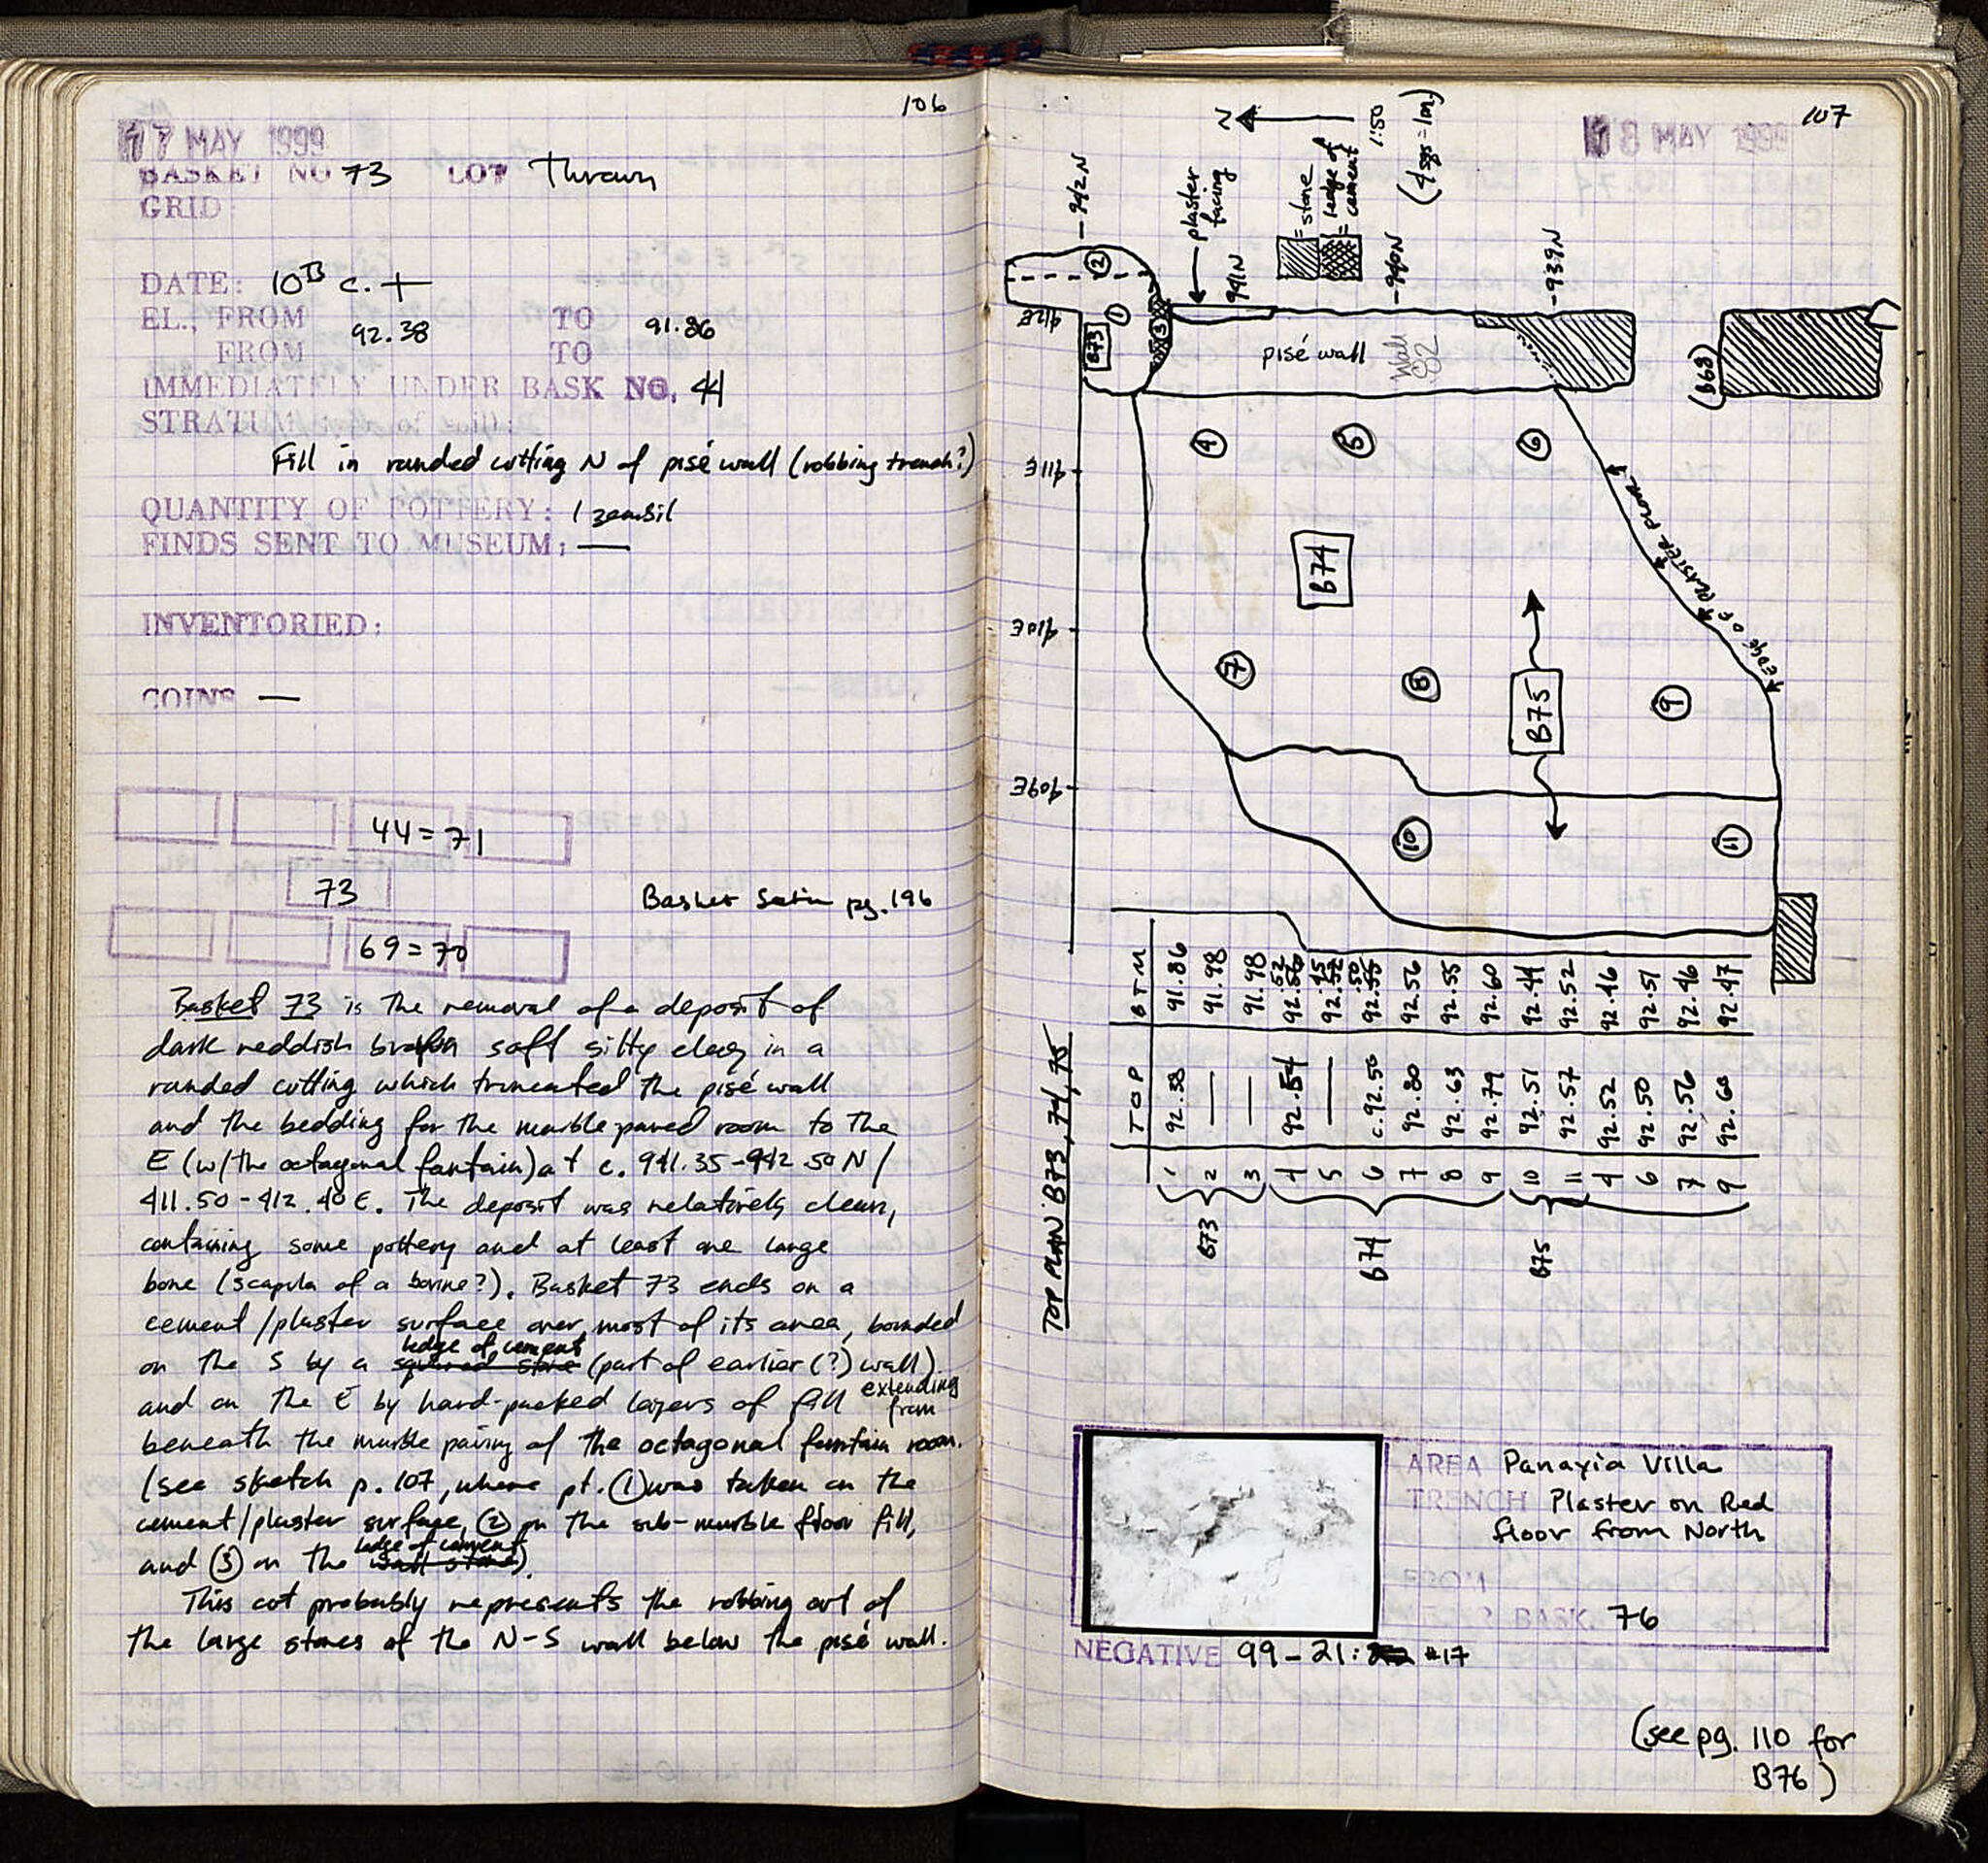 106
17 MAY 1999
BASKET NO 73 LOT Thrown
GRID
DATE: 10TH c. +
EL., FROM 92.38 TO 91.86
FROM TO
IMMEDIATELY UNDER BASK NO. 44
STRATUM
Fill in rounded cutting N of pisé wall (robbing trench?)
QUANTITY OF POTTERY: 1 zembil
FINDS SENT TO MUSEUM: —
INVENTORIED:
COINS —
44 = 71
73
Basket Section pg. 196
69 = 70
Basket 73 is the removal of a deposit of
dark reddish brown soft silty clay in a
rounded cutting which truncated the pisé wall
and the bedding for the marble paved room to the
E (w/the octagonal fountain) at c. 941.35-942.50 N/
411.50-412.40 E. The deposit was relatively clean,
containing some pottery and at least one large
bone (scapula of a bovine?). Basket 73 ends on a
cement/plaster surface over most of its area, bounded
on the S by a squared stone ledge of cement (part of earlier (?) wall)
and on the E by hard-packed layers of fill extending from
beneath the marble paving of the octagonal fountain room.
(see sketch p. 107, where pt. ① was taken on the
cement/plaster surface, ② on the sub-marble floor fill,
and ③ on the wall stone ledge of cement).
This cut probably represents the robbing out of
the large stones of the N-S wall below the pisé wall.
107
18 MAY 1999
N
1:50
(4 sqs = 1m)
= stone
= ledge of cement
plaster facing
942N
941N
940N
939N
412E
411E
410E
409E
B73
① ② ③
pisé wall
Wall 82
(B68)
④ ⑤ ⑥
EDGE OF PLASTER FLOOR
B74
⑦ ⑧ ⑨
B75
⑩ ⑪
TOP PLAN B73, 74, 75
TOP BTM
B73
1 92.38 91.86
2 — 91.98
3 — 91.98
B74
4 92.54 92.56 .52
5 — 92.52 .45
6 c. 92.50 92.55 .50
7 92.80 92.56
8 92.63 92.55
9 92.79 92.60
B75
10 92.51 92.44
11 92.57 92.52
4 92.52 92.46
6 92.50 92.51
7 92.56 92.46
9 92.60 92.47
AREA Panayia Villa
TRENCH Plaster on Red
floor from North
FROM
BASK. 76
NEGATIVE 99-21: #17
(see pg. 110 for
B76)